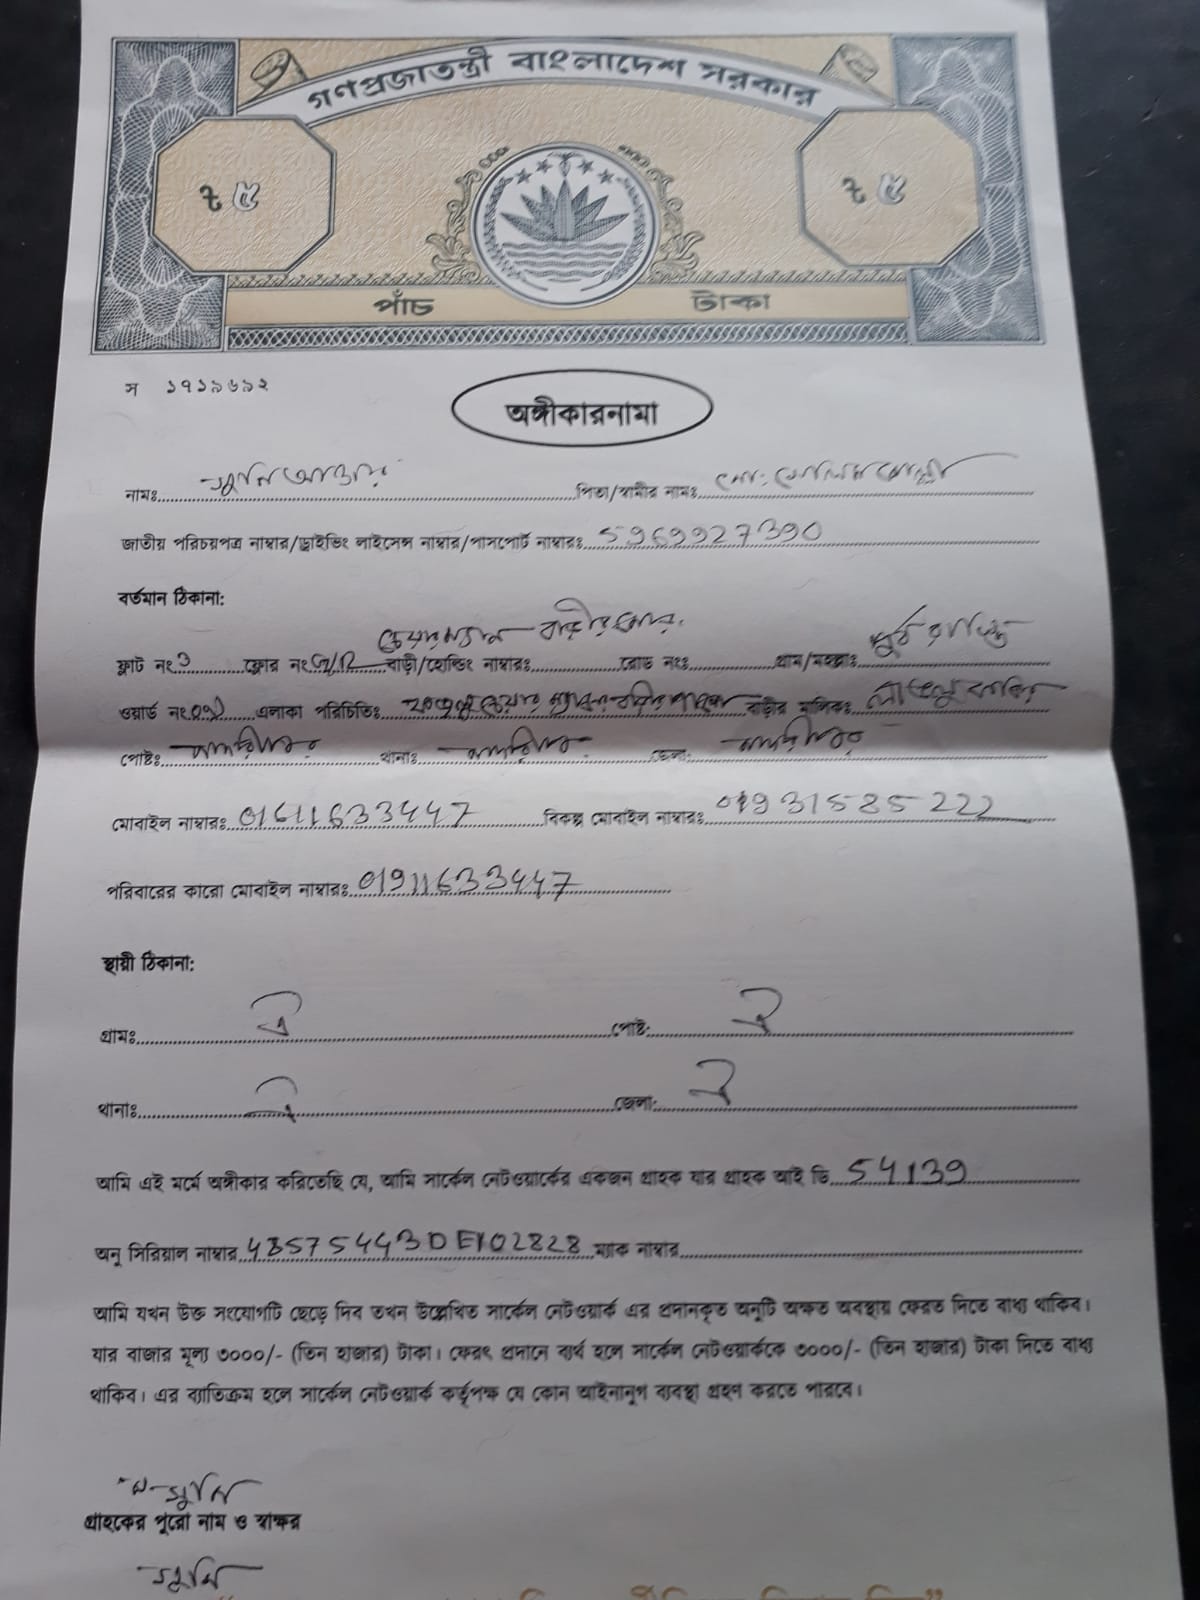 গণপ্রজাতন্ত্রী বাংলাদেশ সরকার
৳ ৫ ৳ ৫
পাঁচ টাকা
স ১৭১৯৬৯২
অঙ্গীকারনামা
নামঃ সুমি আক্তার পিতা/স্বামীর নামঃ মো:
জাতীয় পরিচয়পত্র নাম্বার/ড্রাইভিং লাইসেন্স নাম্বার/পাসপোর্ট নাম্বারঃ 5969927390
বর্তমান ঠিকানা:
ফ্লাট নং ফ্লোর নং বাড়ী/হোল্ডিং নাম্বারঃ রোড নংঃ গ্রাম/মহল্লাঃ
ওয়ার্ড নং এলাকা পরিচিতিঃ বাড়ীর মালিকঃ
পোষ্টঃ থানাঃ জেলা:
মোবাইল নাম্বারঃ 01611633447 বিকল্প মোবাইল নাম্বারঃ 01931585222
পরিবারের কারো মোবাইল নাম্বারঃ 01911633447
স্থায়ী ঠিকানা:
গ্রামঃ ঐ পোষ্ট: ঐ
থানাঃ ঐ জেলা: ঐ
আমি এই মর্মে অঙ্গীকার করিতেছি যে, আমি সার্কেল নেটওয়ার্কের একজন গ্রাহক যার গ্রাহক আই ডি 54139
অনু সিরিয়াল নাম্বার ম্যাক নাম্বার
আমি যখন উক্ত সংযোগটি ছেড়ে দিব তখন উল্লেখিত সার্কেল নেটওয়ার্ক এর প্রদানকৃত অনুটি অক্ষত অবস্থায় ফেরত দিতে বাধ্য থাকিব।
যার বাজার মূল্য ৩০০০/- (তিন হাজার) টাকা। ফেরৎ প্রদানে ব্যর্থ হলে সার্কেল নেটওয়ার্ককে ৩০০০/- (তিন হাজার) টাকা দিতে বাধ্য
থাকিব। এর ব্যাতিক্রম হলে সার্কেল নেটওয়ার্ক কর্তৃপক্ষ যে কোন আইনানুগ ব্যবস্থা গ্রহণ করতে পারবে।
সুমি
গ্রাহকের পুরো নাম ও স্বাক্ষর
সুমি